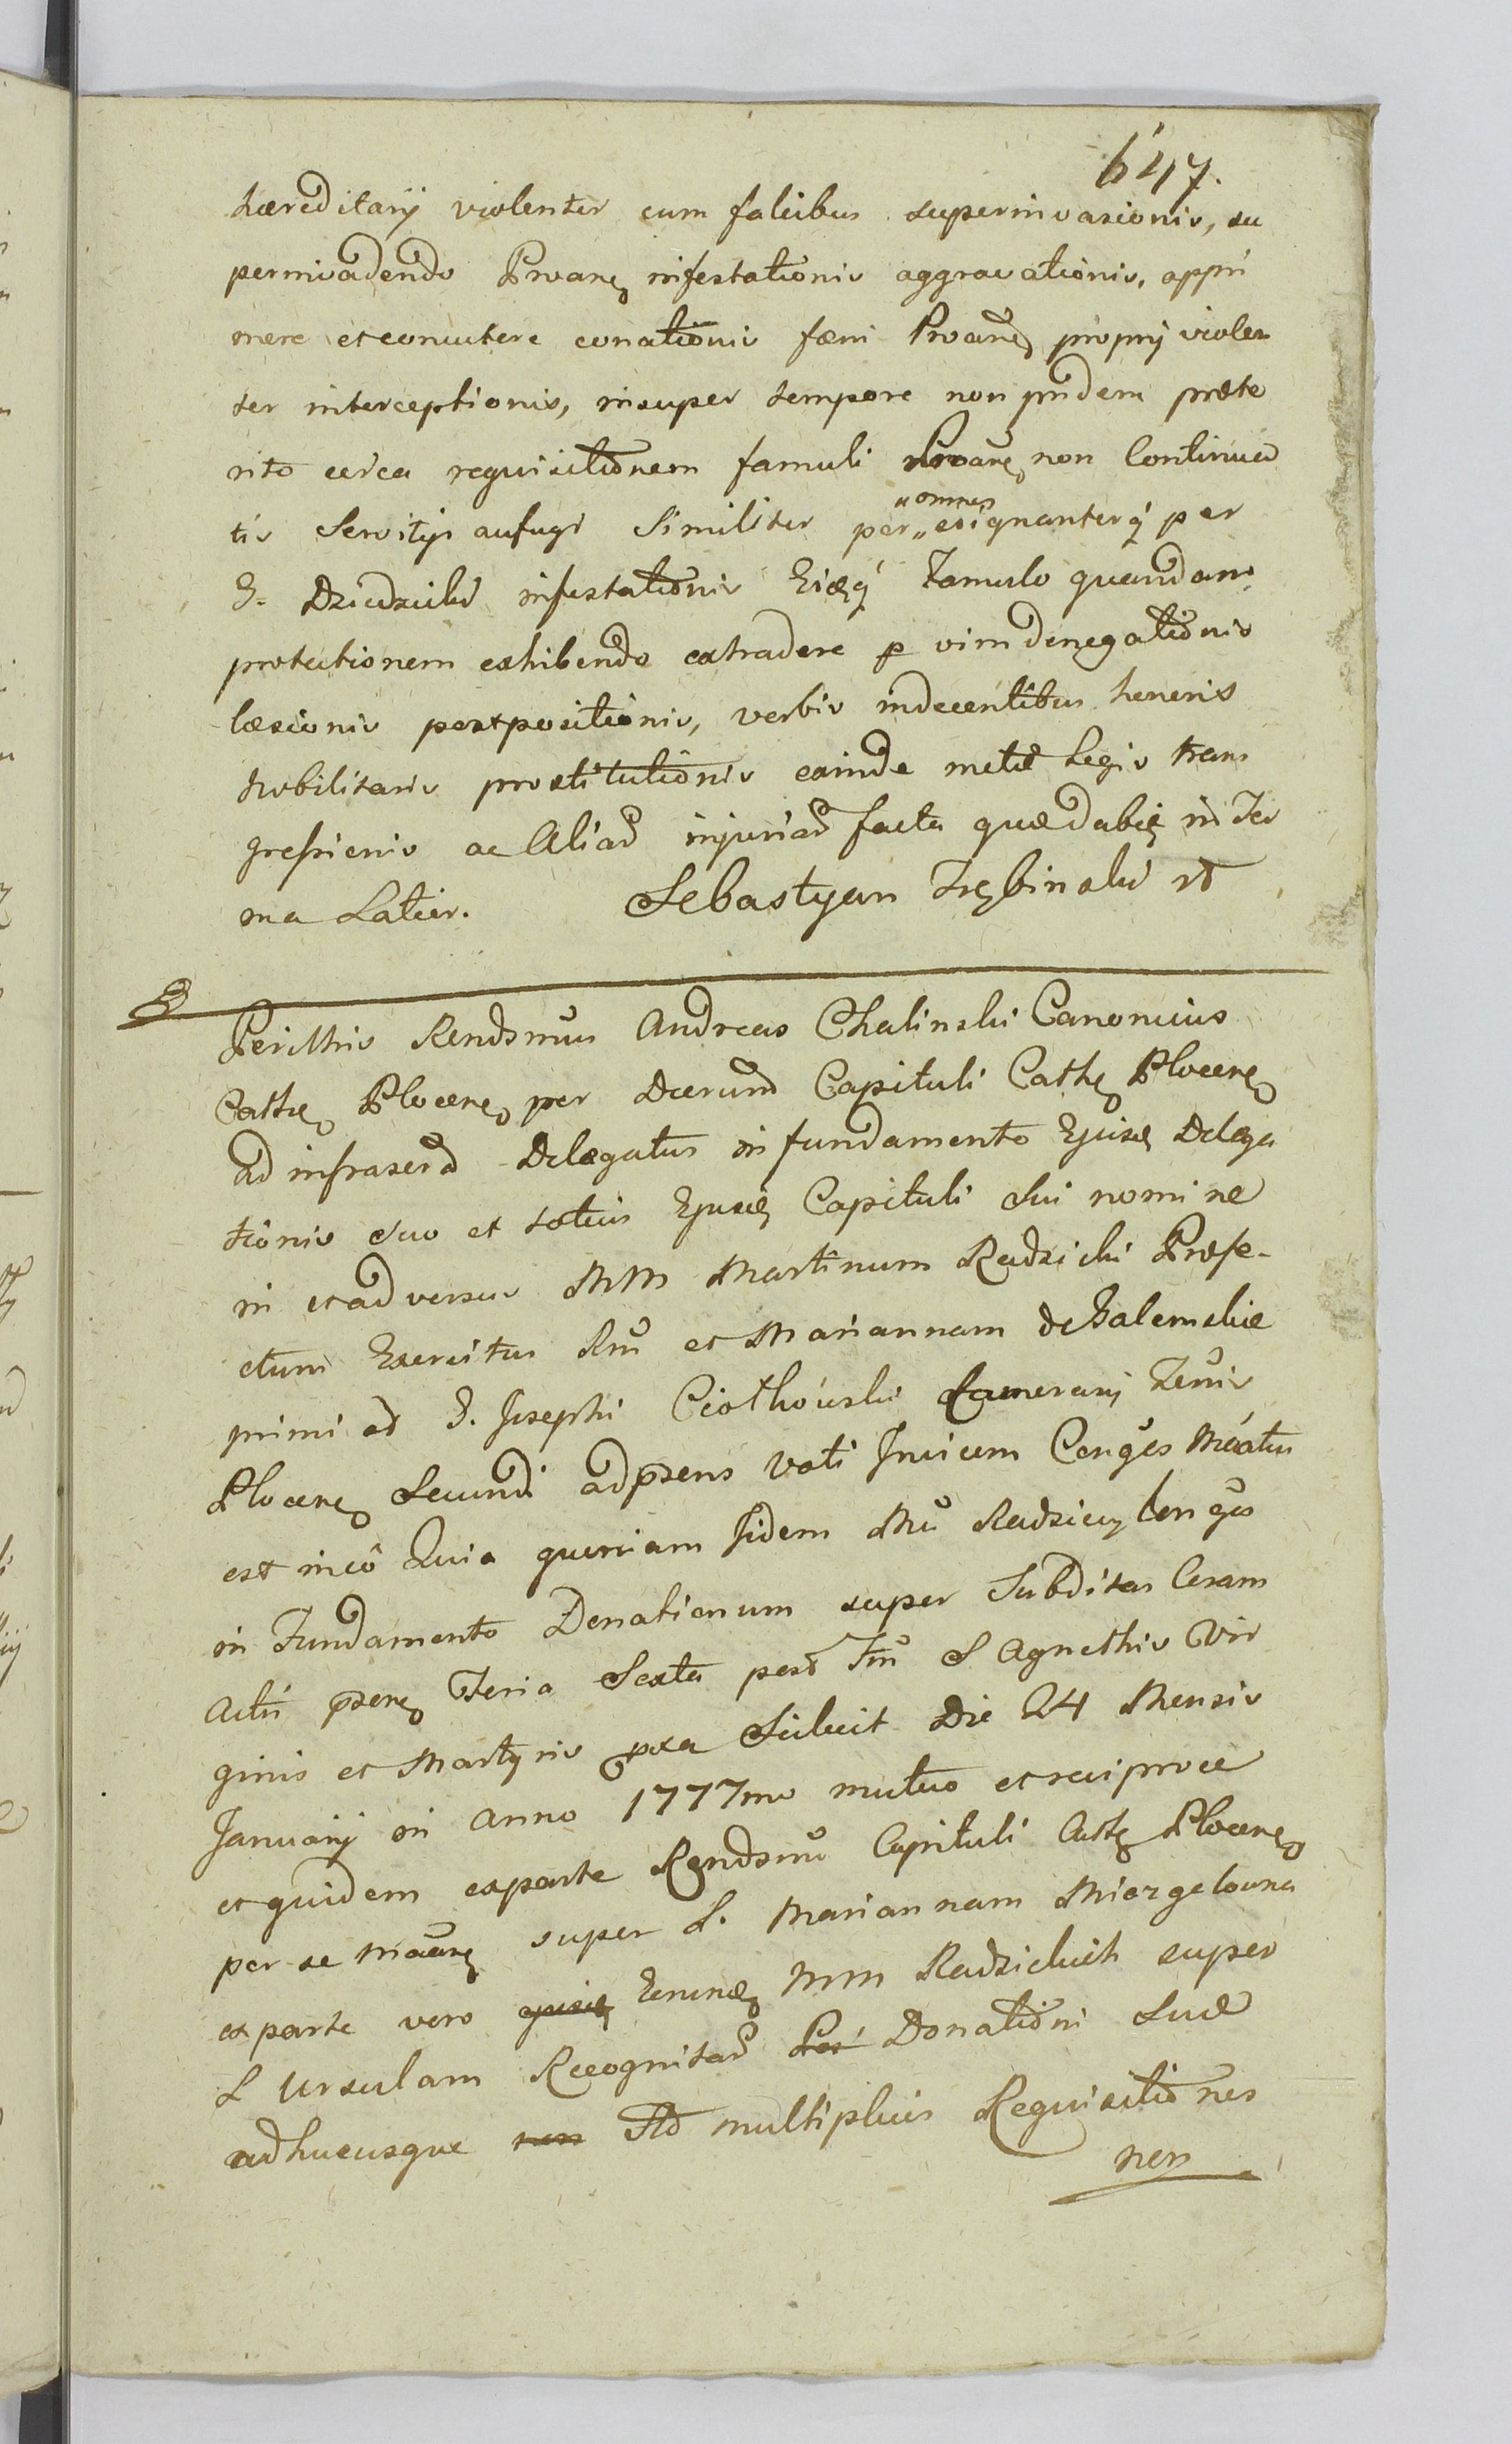 647.
hæreditarij violenter cum falcibus superinvasionis, su
perinvadendo Proane infestationis aggravationis, oppri
mere et concutere conationis fæni Proane proprij violen
ter interceptionis, insuper tempore non pridem præte
rito circa requisitionem famuli Proane non Continua
tis Servitijs aufugi Similiter per „ esignanterq per
„ omnes
G. Dziedzicki infestationis Eieq Famulo quandam
protectionem exhibendo extradere p vim denegationis
læsionis postpositionis, verbis indecentibus honeris
Nobilitaris prostitutionis exinde metæ Legis trans
gressionis ac Aliar injuriar facta quædabit in Ter
ma Latior. Sebastyan Trębinski
Perillris Rendsmus Andreas Chalinski Canonicus
Cathe Plocene per Decretum Capituli Cathe Plocene
ad infrascr Delegatus in fundamento Ejusd Delega
tionis suo et totius Ejusd Capituli sui nomine
in et adversus MM Martinum Radzicki Præfe-
ctum Exercitus Rni et Mariannam de Zalemskie
primi ad G. Josephi Ciołkowski Camerarij Terris
Plocene Secundi ad præsens Voti Invicem Conges Mcatus
est in eo Quia quoniam Iidem MM Radziccy Conges
in Fundamento Donationum super Subditas Coram
Actis præsene Feria Sexta post Fm S Agnethis Vir
ginis et Martyris pxa Scilicet Die 24 Mensis
Januarij in Anno 1777mo mutuo et reciproce
et quidem exparte Rendsmi Capituli Cathe Plocene
per se super L. Mariannam Miozgelowna
ex parte vero MM Radzickich super
L Ursulam Recognitar Donationi suæ
adhucusque Ad multiplices Requisitiones
non